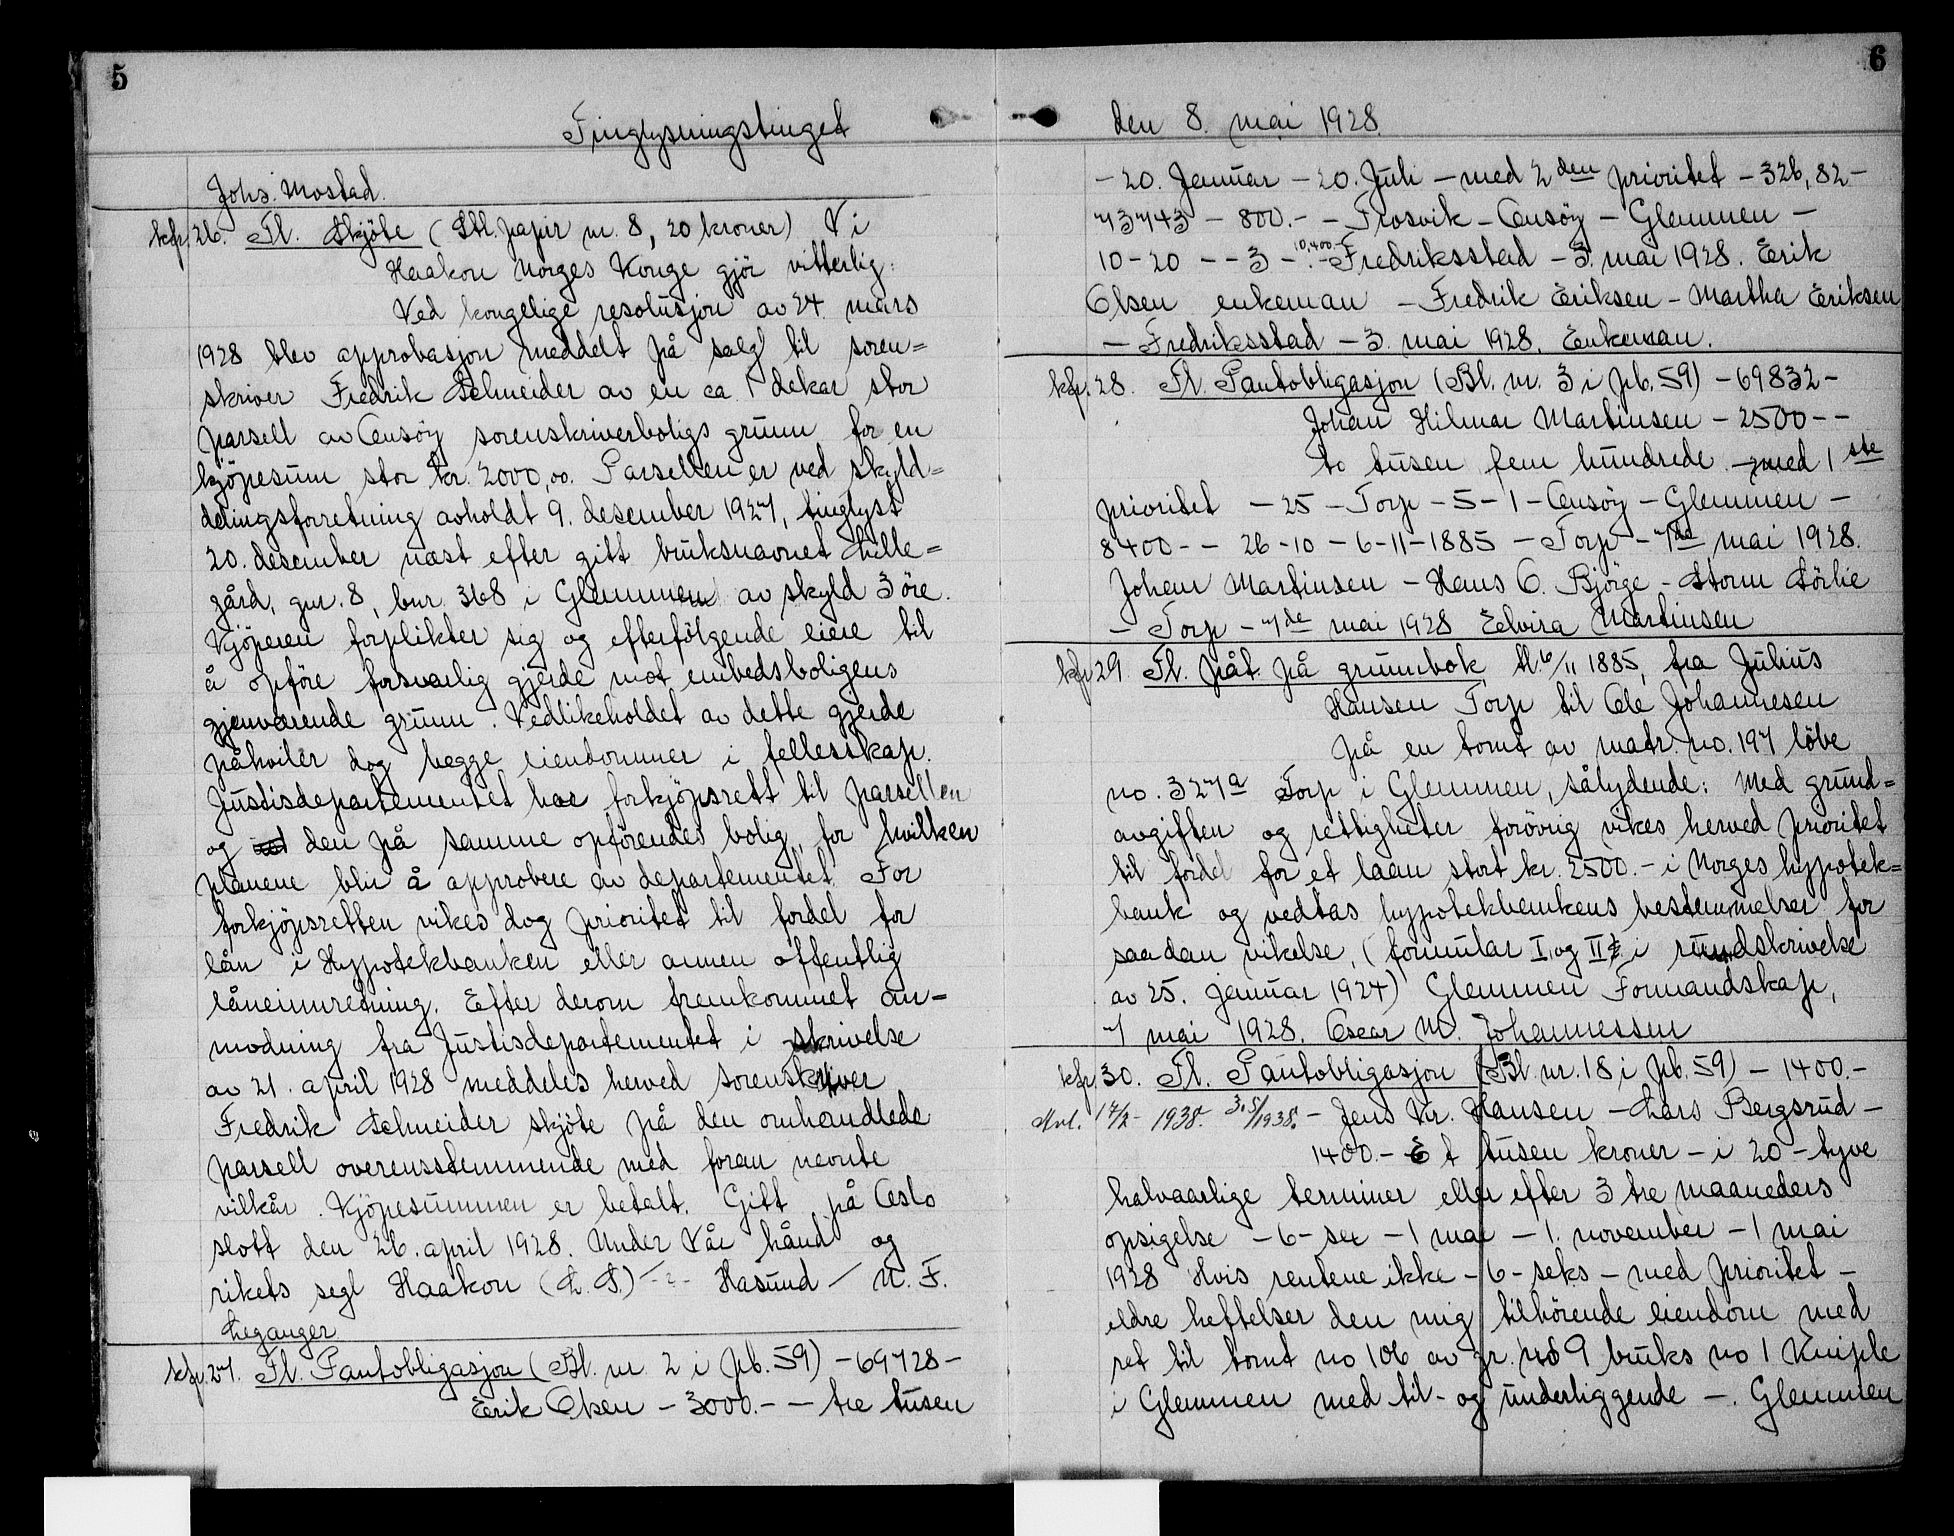 5
Tinglysningstinget
Johs. Mostad.
kfr. 26. Tl. Skjöte (Stl. papir nr. 8, 20 kroner) Vi
Haakon Norges Konge gjör vitterlig:
Ved kongelige resolusjon av 24. mars
1928 blev approbasjon meddelt på salg til soren=
skriver Fredrik Schneider av en ca. 1 dekar stor
parsell av Onsöy sorenskriverboligs grunn for en
kjöpesum stor kr. 2000,00. Parsellen er ved skyld=
delingsforretning avholdt 9. desember 1927, tinglyst
20. desember næst efter gitt bruksnavnet Lille=
gård, gnr. 8, bnr. 368 i Glemmen av skyld 3 öre.
Kjöperen forplikter sig og efterfölgende eiere til
å opföre forsvarlig gjerde mot embedsboligens
gjenværende grunn. Vedlikeholdet av dette gjerde
påhviler dog begge eiendommer i fellesskap.
Justisdepartementet har forkjöpsrett til parsellen
og den på samme opförendes bolig, for hvilken
planene blir å approbere av departementet. For
forkjöpsretten vikes dog prioritet til fordel for
lån i Hypotekbanken eller annen offentlig
låneinnretning. Efter derom fremkommet an-
modning fra Justisdepartementet i skrivelse
av 21. april 1928 meddeles herved sorenskriver
Fredrik Schneider skjöte på den omhandlede
parsell overensstemmende med foran nevnte
vilkår. Kjöpesummen er betalt. Gitt på Oslo
slott den 26. april 1928. Under Vår hånd og
rikets segl Haakon (L. S.) Hasund / N. F.
Leganger
kfr. 27. Tl. Pantobligasjon (Bl. nr. 2 i pb. 59) - 69728 -
Erik Olsen - 3000.- - tre tusen
6
den 8. mai 1928
- 20. Januar - 20. Juli - med 2den prioritet - 326, 82 -
73743 - 800.- - Trosvik - Onsöy - Glemmen -
10 - 20 - - 3 - 10,400.- - Fredriksstad - 3. mai 1928. Erik
Olsen enkeman - Fredrik Eriksen - Martha Eriksen
- Fredriksstad - 3. mai 1928. Enkeman.
kfr. 28. Tl. Pantobligasjon (Bl. nr. 3 i pb. 59) - 69832 -
Johan Hilmar Martinsen - 2500 - -
to tusen fem hundrede - med 1ste
prioritet - 25 - Torp - 5 - 1 - Onsöy - Glemmen -
8400 - - 26 - 10 - 6 - 11 - 1885 - Torp - 7de mai 1928.
Johan Martinsen - Hans O. Björge - Storm Sörlie
- Torp - 7de mai 1928 Elvira Martinsen
kfr. 29. Tl. påt. på grunnbok, tl. 6/11 1885, fra Julius
Hansen Torp til Ole Johannesen
på en tomt av matr. no. 197 löbe
no. 327a Torp i Glemmen, sålydende: Med grund=
avgiften og rettigheter forövrig vikes herved prioritet
til fordel for et laan stort kr. 2500.- i Norges hypotek=
bank og vedtas hypotekbankens bestemmelser for
saadan vikelse, (formular I og II i rundskrivelse
av 25. januar 1924) Glemmen Formandskap,
7 mai 1928. Oscar M. Johannessen
kfr. 30. Tl. Pantobligasjon (Bl. nr. 18 i pb. 59) - 1400.-
Avl. 17/2- 1938. - Jens Kr. Hansen - Lars Bergsrud -
1400.- Et tusen kroner - i 20 - tyve
halvaarlige terminer eller efter 3 tre maaneders
opsigelse - 6 - sex - 1 mai - 1. november - 1 mai
1928 Hvis rentene ikke - 6 - seks - med prioritet -
eldre heftelser den mig tilhörende eiendom med
ret til tomt no 106 av gr. no 9 bruks no 1 Kniple
i Glemmen med til- og underliggende -. Glemmen